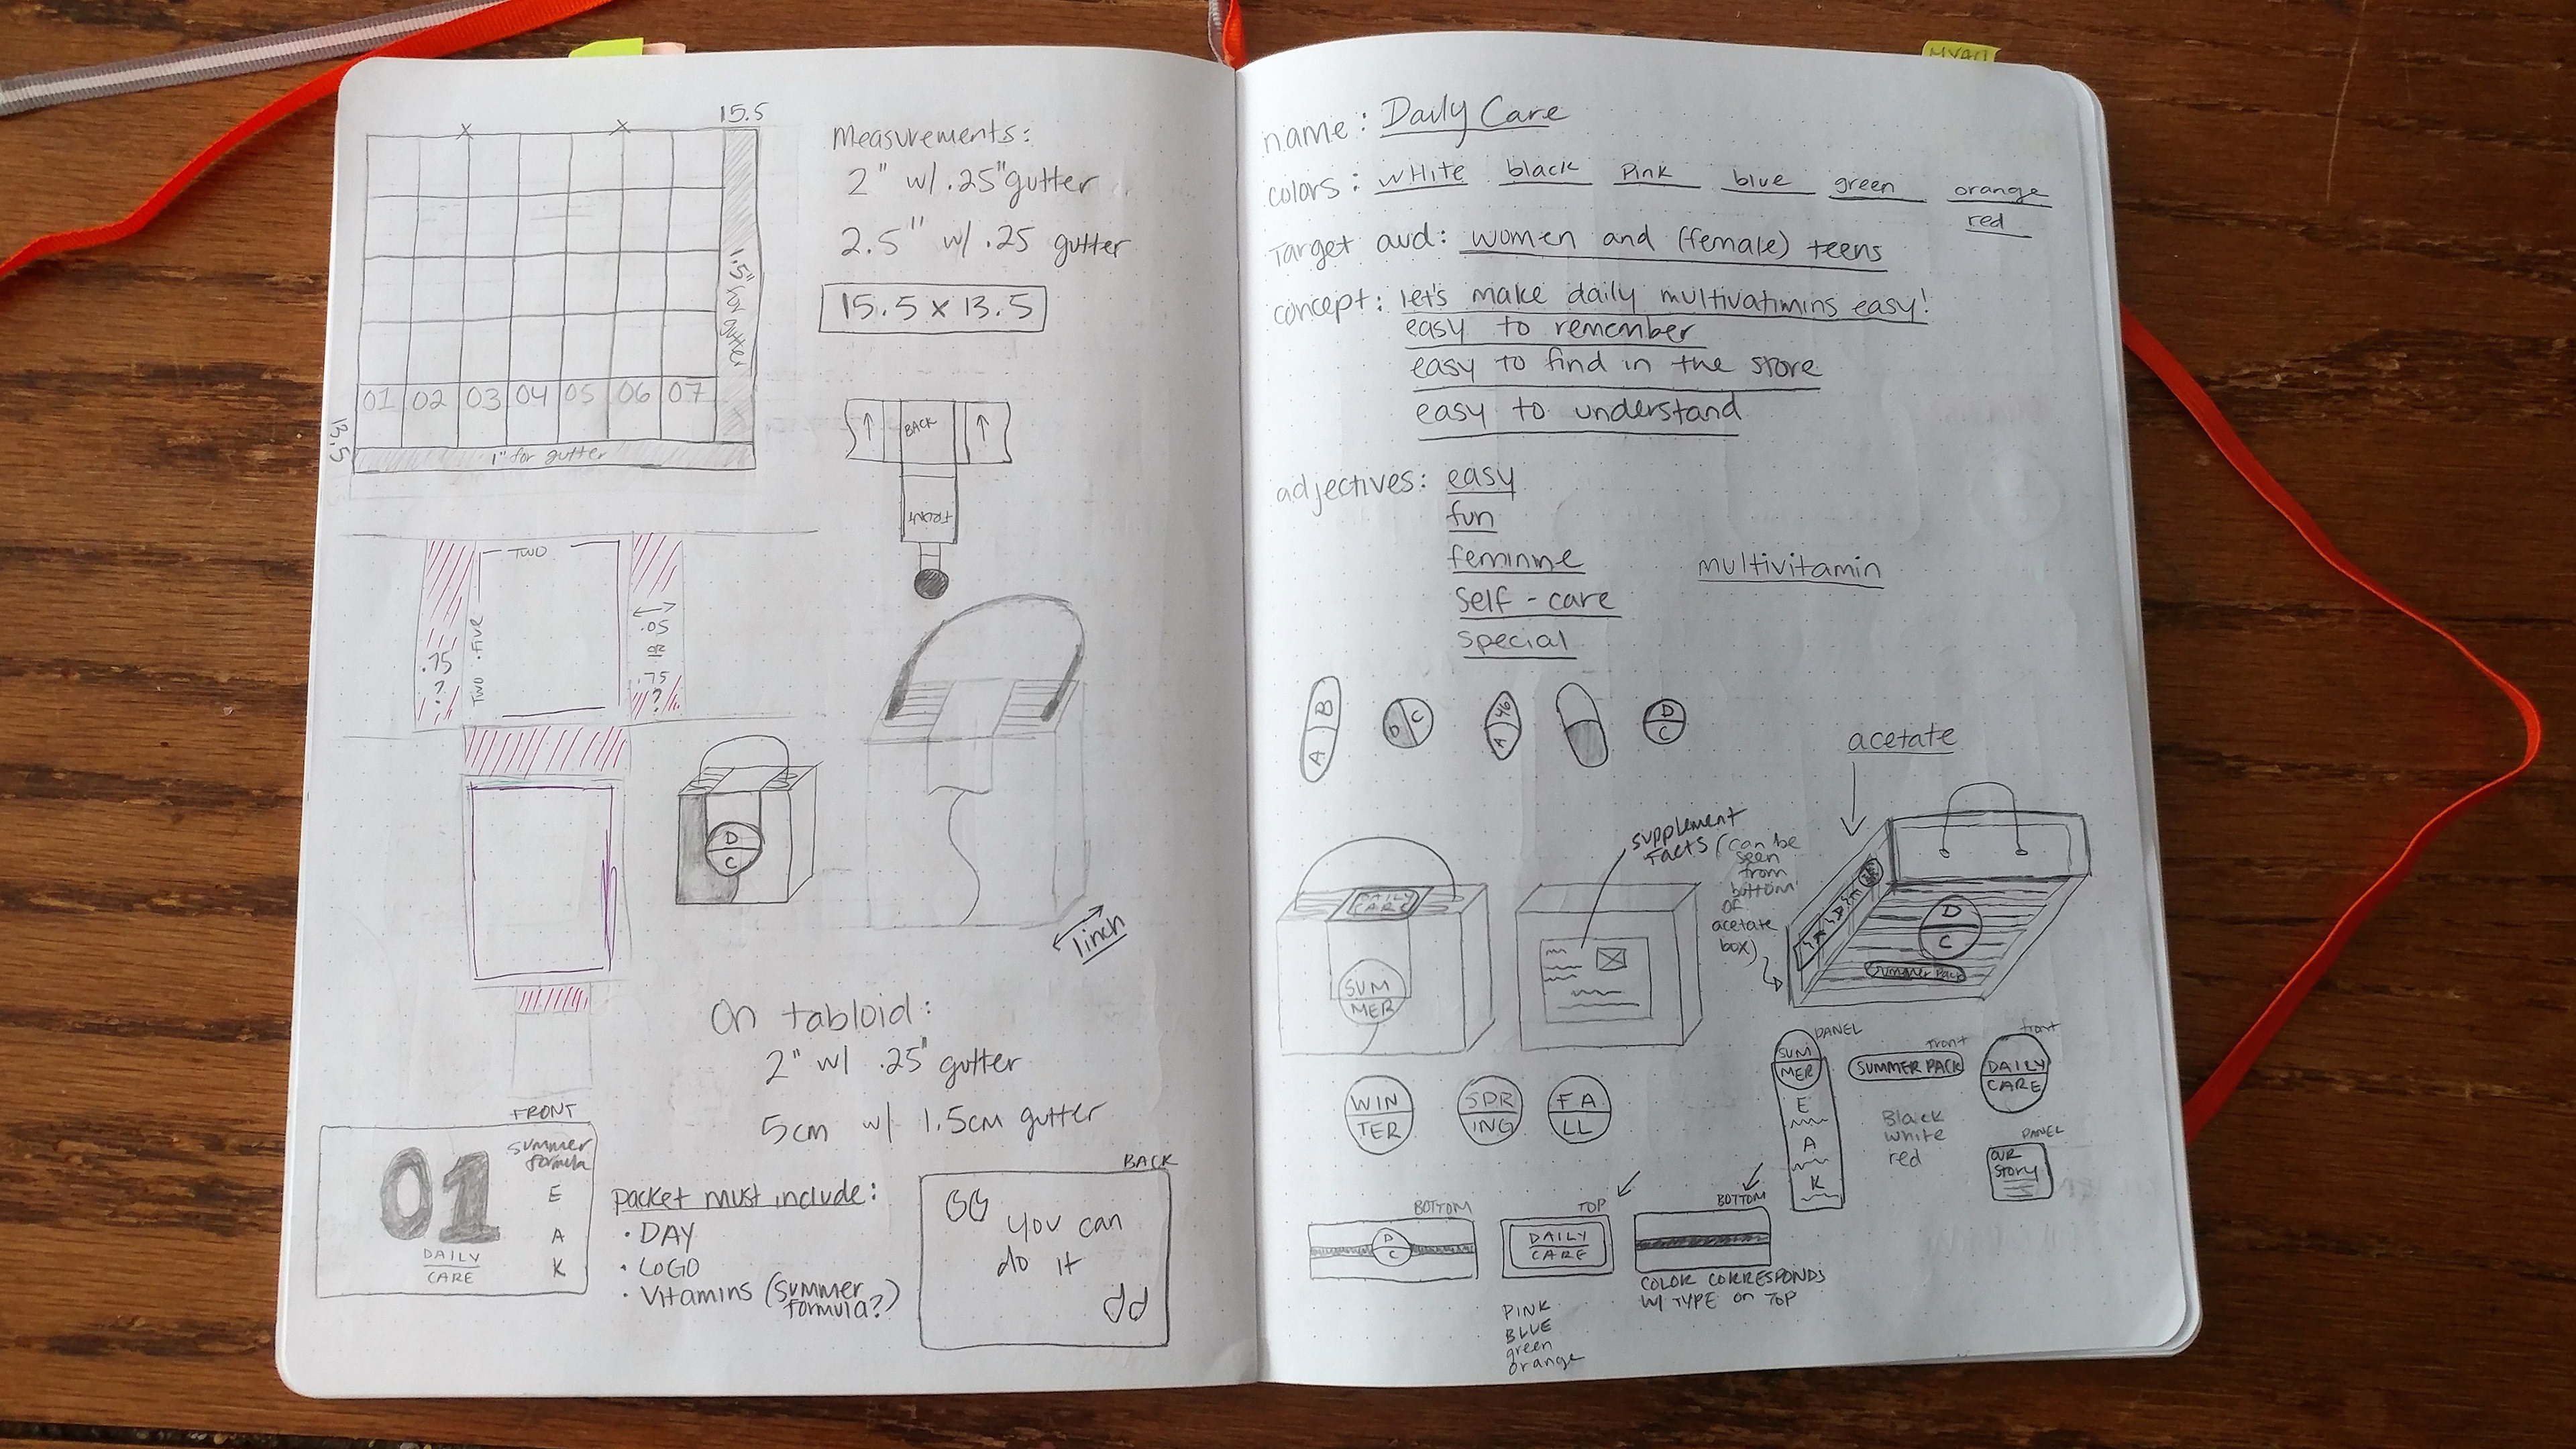 15.5
Measurements:
2" w/ .25" gutter
2.5" w/ .25 gutter
15.5 x 13.5
1.5" for gutter
01 02 03 04 05 06 07
13.5
1" for gutter
BACK
FRONT
TWO
TWO.FIVE
.75
?
.05
OR
.75
?
D
C
1inch
On tabloid:
2" w/ .25" gutter
5cm w/ 1.5cm gutter
FRONT
01
DAILY
CARE
summer
formula
E
A
K
packet must include:
• DAY
• LOGO
• Vitamins (summer
formula?)
BACK
you can
do it
name: Daily Care
colors: white black pink blue green orange
red
Target aud: women and (female) teens
concept: let's make daily multivatimins easy!
easy to remember
easy to find in the store
easy to understand
adjectives: easy
fun
feminine
self-care
special
multivitamin
A B
D C
A 46
D
C
acetate
supplement
facts (can be
seen
from
bottom
of
acetate
box)
DAILY
CARE
SUM
MER
D
C
Summer Pack
WIN
TER
SPR
ING
FA
LL
PANEL
SUM
MER
E
A
K
front
SUMMER PACK
front
DAILY
CARE
Black
white
red
PANEL
OUR
Story
BOTTOM
D
C
TOP
DAILY
CARE
PINK
BLUE
green
orange
BOTTOM
COLOR CORRESPONDS
W/ TYPE on TOP